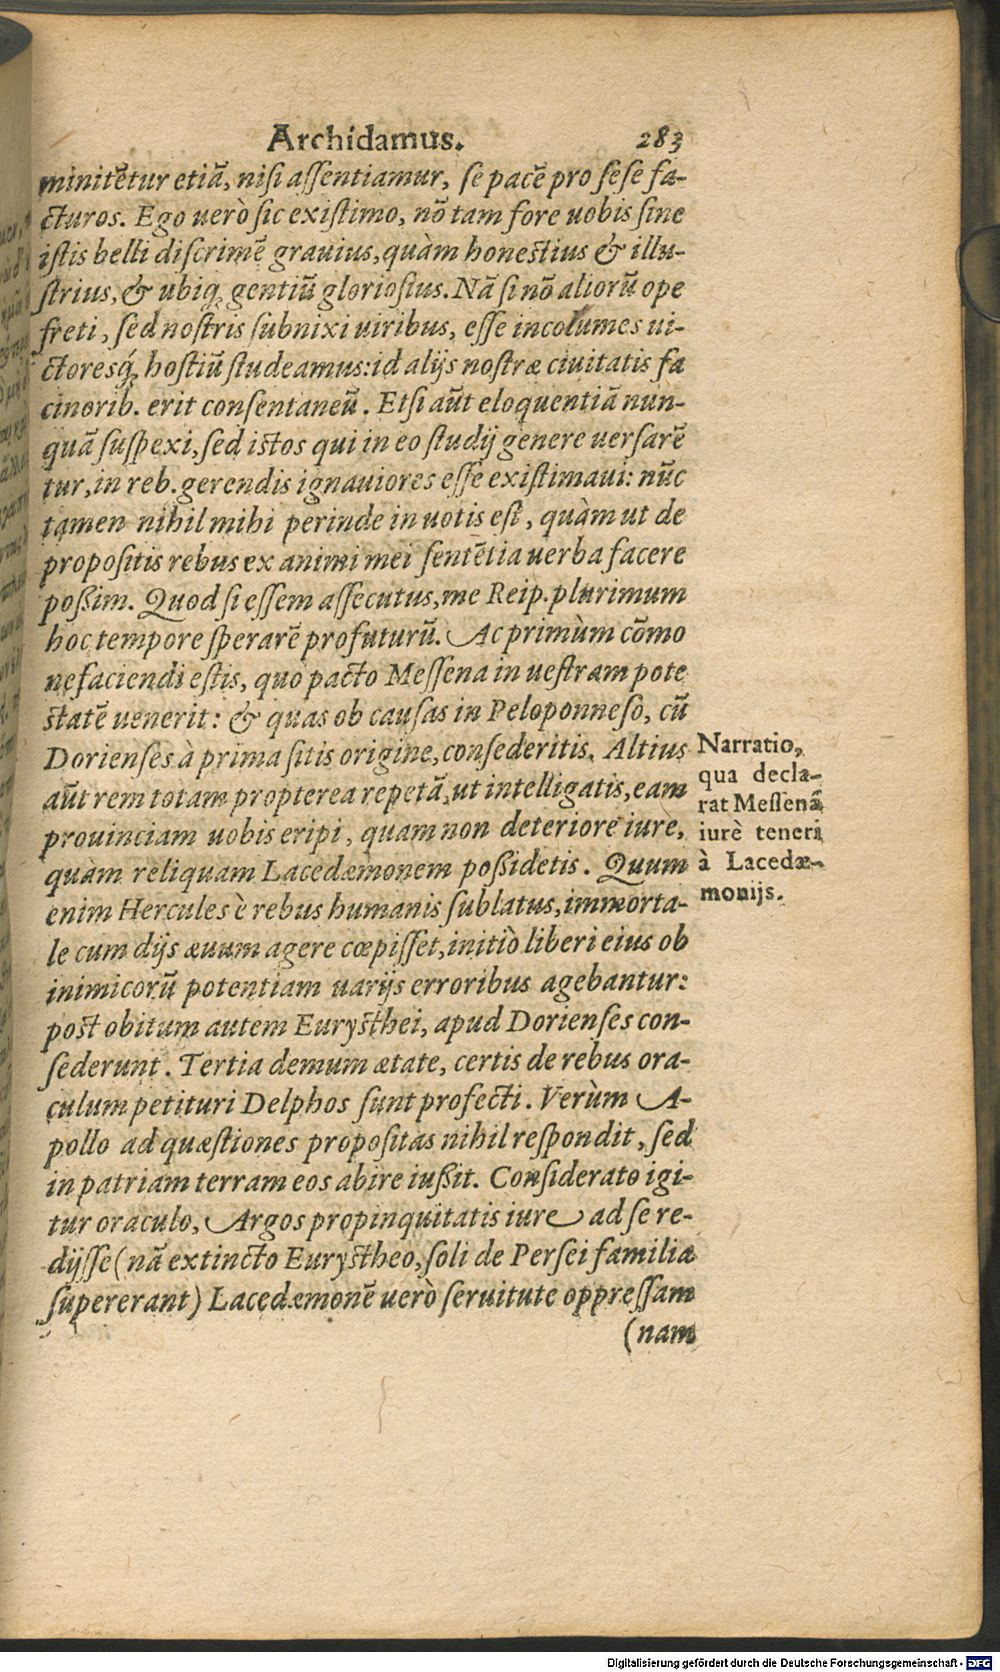 Archidamus. 283
minitētur etiā, niſi aſſentiamur, ſe pacē pro ſeſe fa-
cturos. Ego uerò ſic exiſtimo, nō tam fore uobis ſine
iſtis belli diſcrimē grauius, quàm honeſtius & illu-
ſtrius, & ubiq; gentiū glorioſius. Nā ſi nō aliorū ope
freti, ſed noſtris ſubnixi uiribus, eſſe incolumes ui-
ctoresq́; hoſtiū ſtudeamus: id alijs noſtræ ciuitatis fa
cinorib. erit conſentaneū. Etſi aūt eloquentiā nun-
quā ſuſpexi, ſed iſtos qui in eo ſtudij genere uerſarē
tur, in reb. gerendis ignauiores eſſe exiſtimaui: nūc
tamen nihil mihi perinde in uotis eſt, quàm ut de
propoſitis rebus ex animi mei ſentētia uerba facere
poßim. Quod ſi eſſem aſſecutus, me Reip. plurimum
hoc tempore ſperarē profuturū. Ac primùm cōmo
nefaciendi eſtis, quo pacto Meſſena in ueſtram pote
ſtatē uenerit: & quas ob cauſas in Peloponneſo, cū
Dorienſes à prima ſitis origine, conſederitis. Altius
aūt rem totam propterea repetā, ut intelligatis, eam
prouinciam uobis eripi, quam non deteriore iure,
quàm reliquam Lacedæmonem poßidetis. Quum
enim Hercules è rebus humanis ſublatus, immorta-
le cum dijs æuum agere cœpiſſet, initiò liberi eius ob
inimicorū potentiam uarijs erroribus agebantur:
post obitum autem Euryſthei, apud Dorienſes con-
ſederunt. Tertia demum ætate, certis de rebus ora-
culum petituri Delphos ſunt profecti. Verùm A-
pollo ad quæſtiones propoſitas nihil reſpondit, ſed
in patriam terram eos abire iußit. Conſiderato igi-
tur oraculo, Argos propinquitatis iure ad ſe re-
dijſſe (nā extincto Euryſtheo, ſoli de Perſei familia
ſupererant) Lacedæmonē uerò ſeruitute oppreſſam
(nam
Narratio,
qua decla-
rat Meſſenā
iurè teneri
à Lacedæ-
monijs.
Digitalisierung gefördert durch die Deutsche Forschungsgemeinschaft - DFG